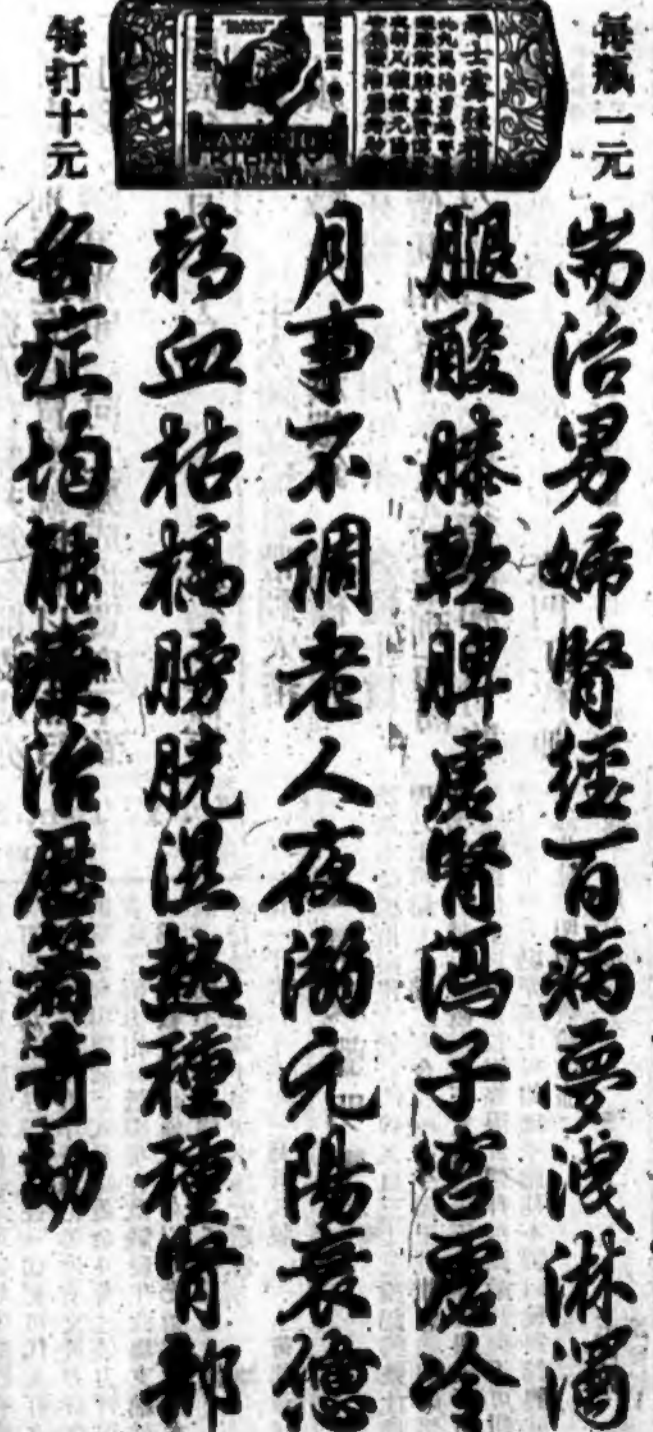 每瓶一元
每打十元
耑治男婦腎經百病夢洩淋濁
腿酸膝軟脾虛腎瀉子宮虛冷
月事不調老人夜溺元陽衰憊
精血枯槁膀胱湿热種種腎部
各症均能療治歷著奇効